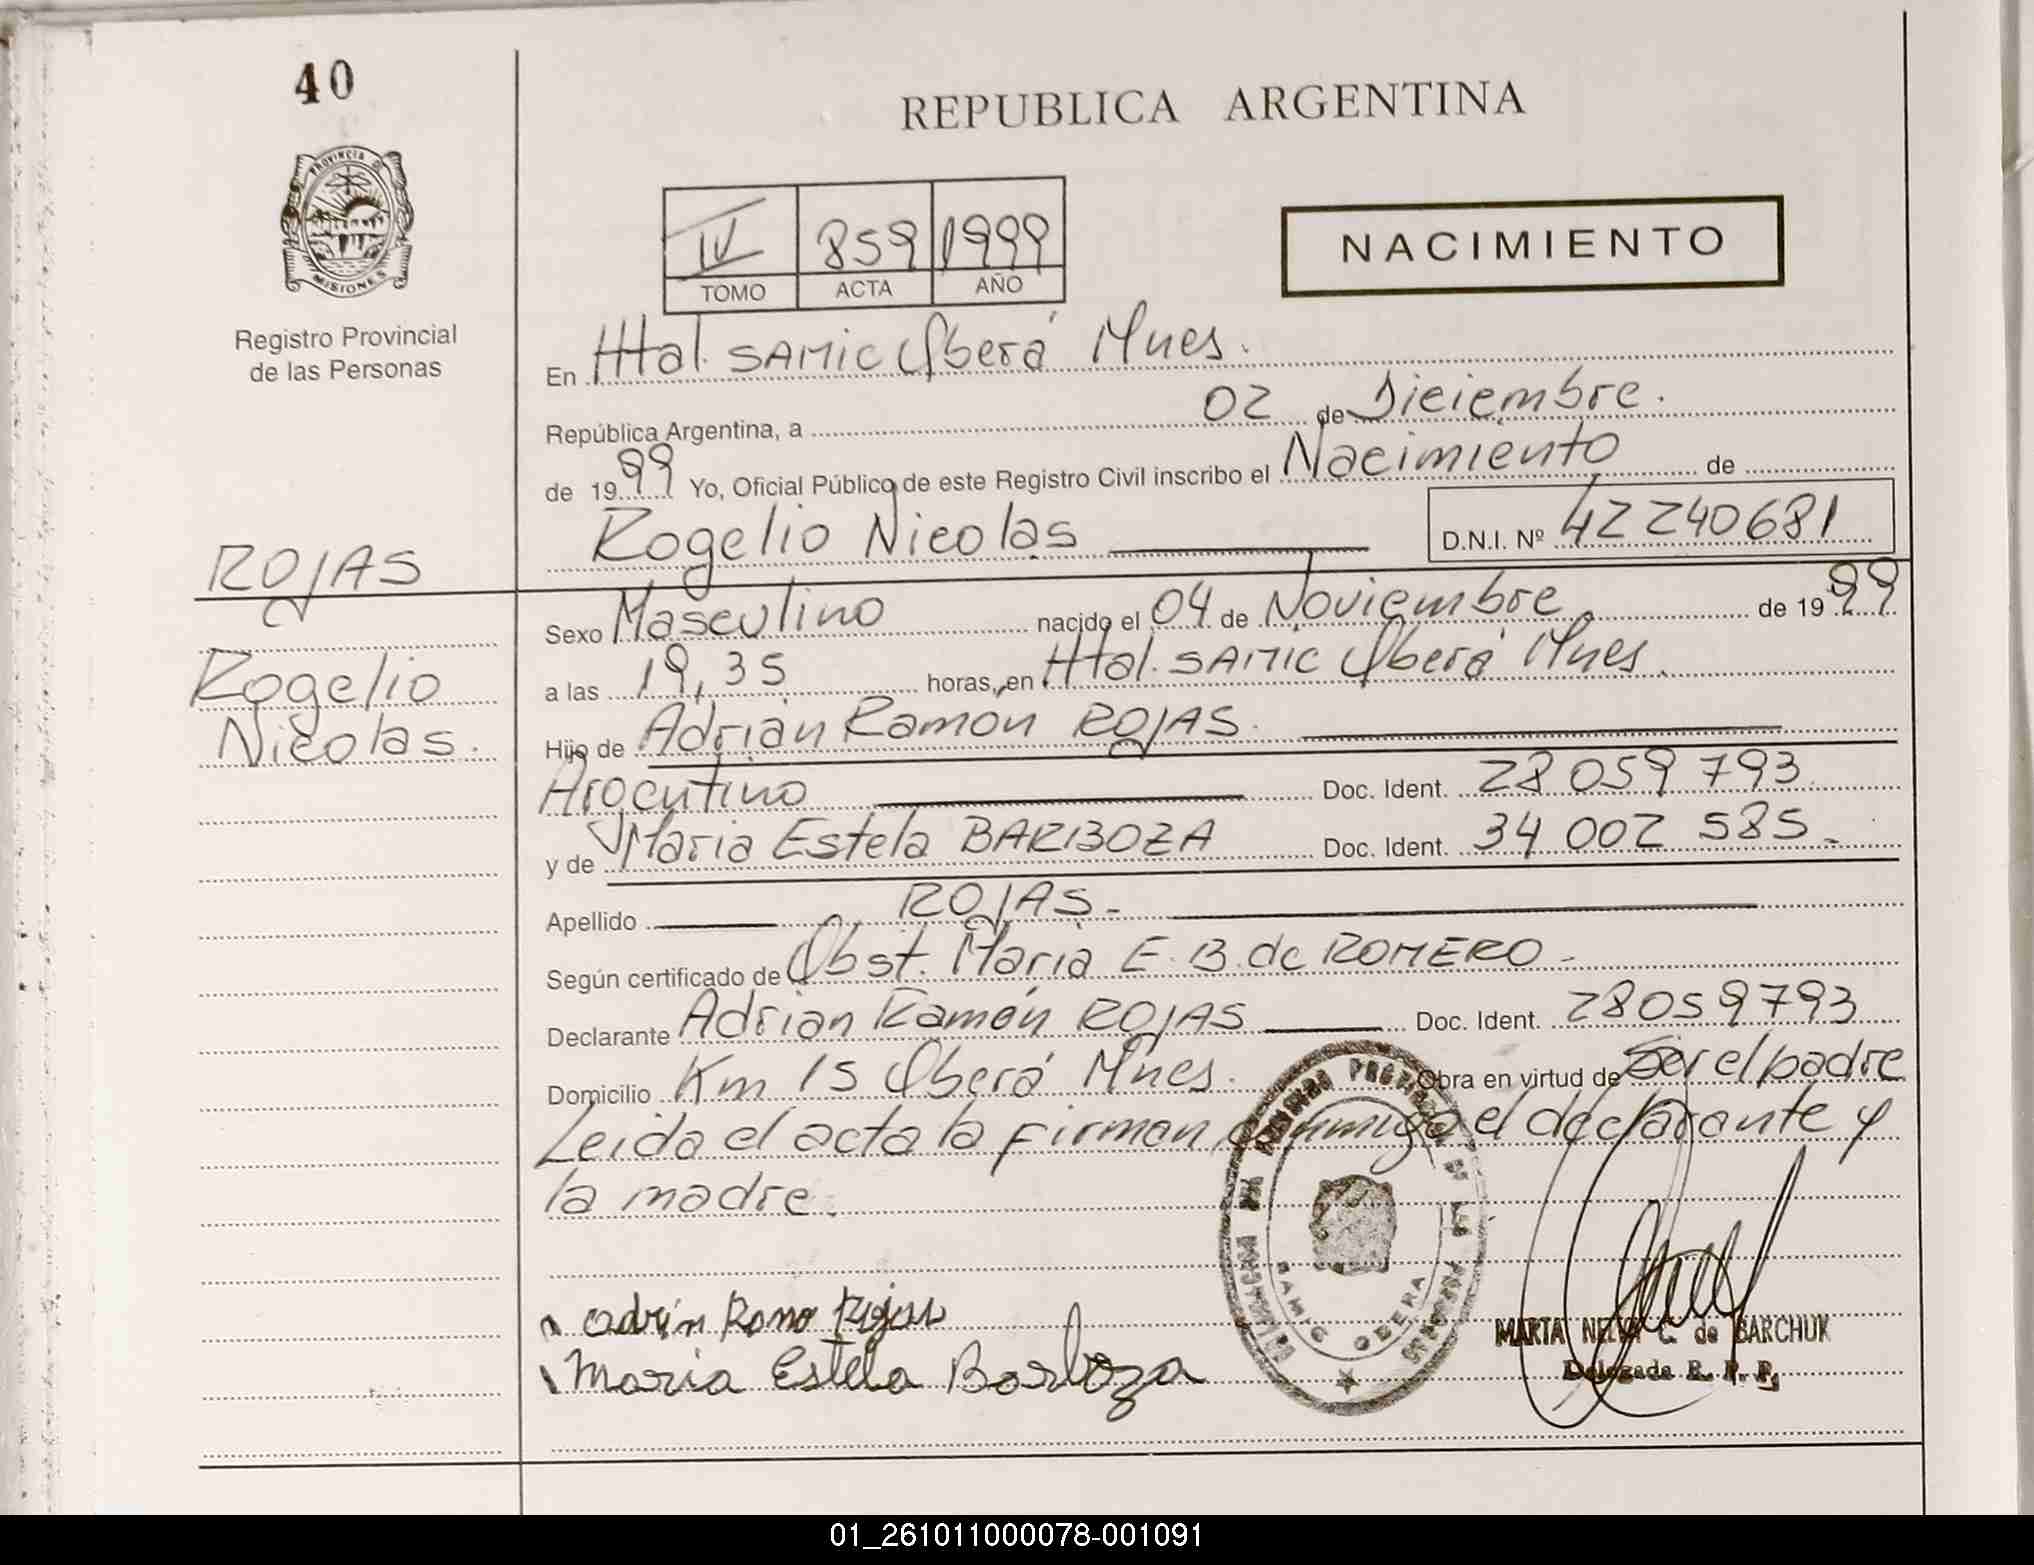 40
REPUBLICA ARGENTINA
PROVINCIA DE
MISIONES
Registro Provincial
de las Personas
IV 859 1999
TOMO ACTA AÑO
NACIMIENTO
En Htal. SAMIC Oberá Mnes.
República Argentina, a 02 de Diciembre.
de 1999 Yo, Oficial Público de este Registro Civil inscribo el Nacimiento de
Rogelio Nicolas D.N.I. Nº 42240681
ROJAS
Rogelio
Nicolas.
Sexo Masculino nacido el 04 de Noviembre de 1999
a las 19,35 horas, en Htal. SAMIC Oberá Mnes.
Hijo de Adrián Ramón ROJAS.
Argentino Doc. Ident. 28 059 793.
y de Maria Estela BARBOZA Doc. Ident. 34 002 585.-
Apellido ROJAS.-
Según certificado de Obst. Maria E. B. de ROMERO.-
Declarante Adrian Ramón ROJAS Doc. Ident. 28059793
Domicilio Km 15 Oberá Mnes. Obra en virtud de Ser el padre
Leida el acta la firman, conmigo el declarante y
la madre.
SAMIC OBERA
Maria Estela Barboza
MARTA de BARCHUK
Delegada R. P. P.
01_261011000078-001091